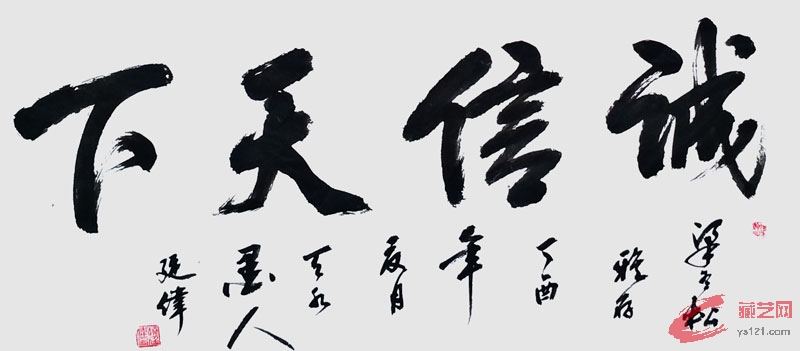 诚信天下
梁 松
雅存
丁酉
年
夏月
天水
墨人
延偉
藏艺网
ys121.com